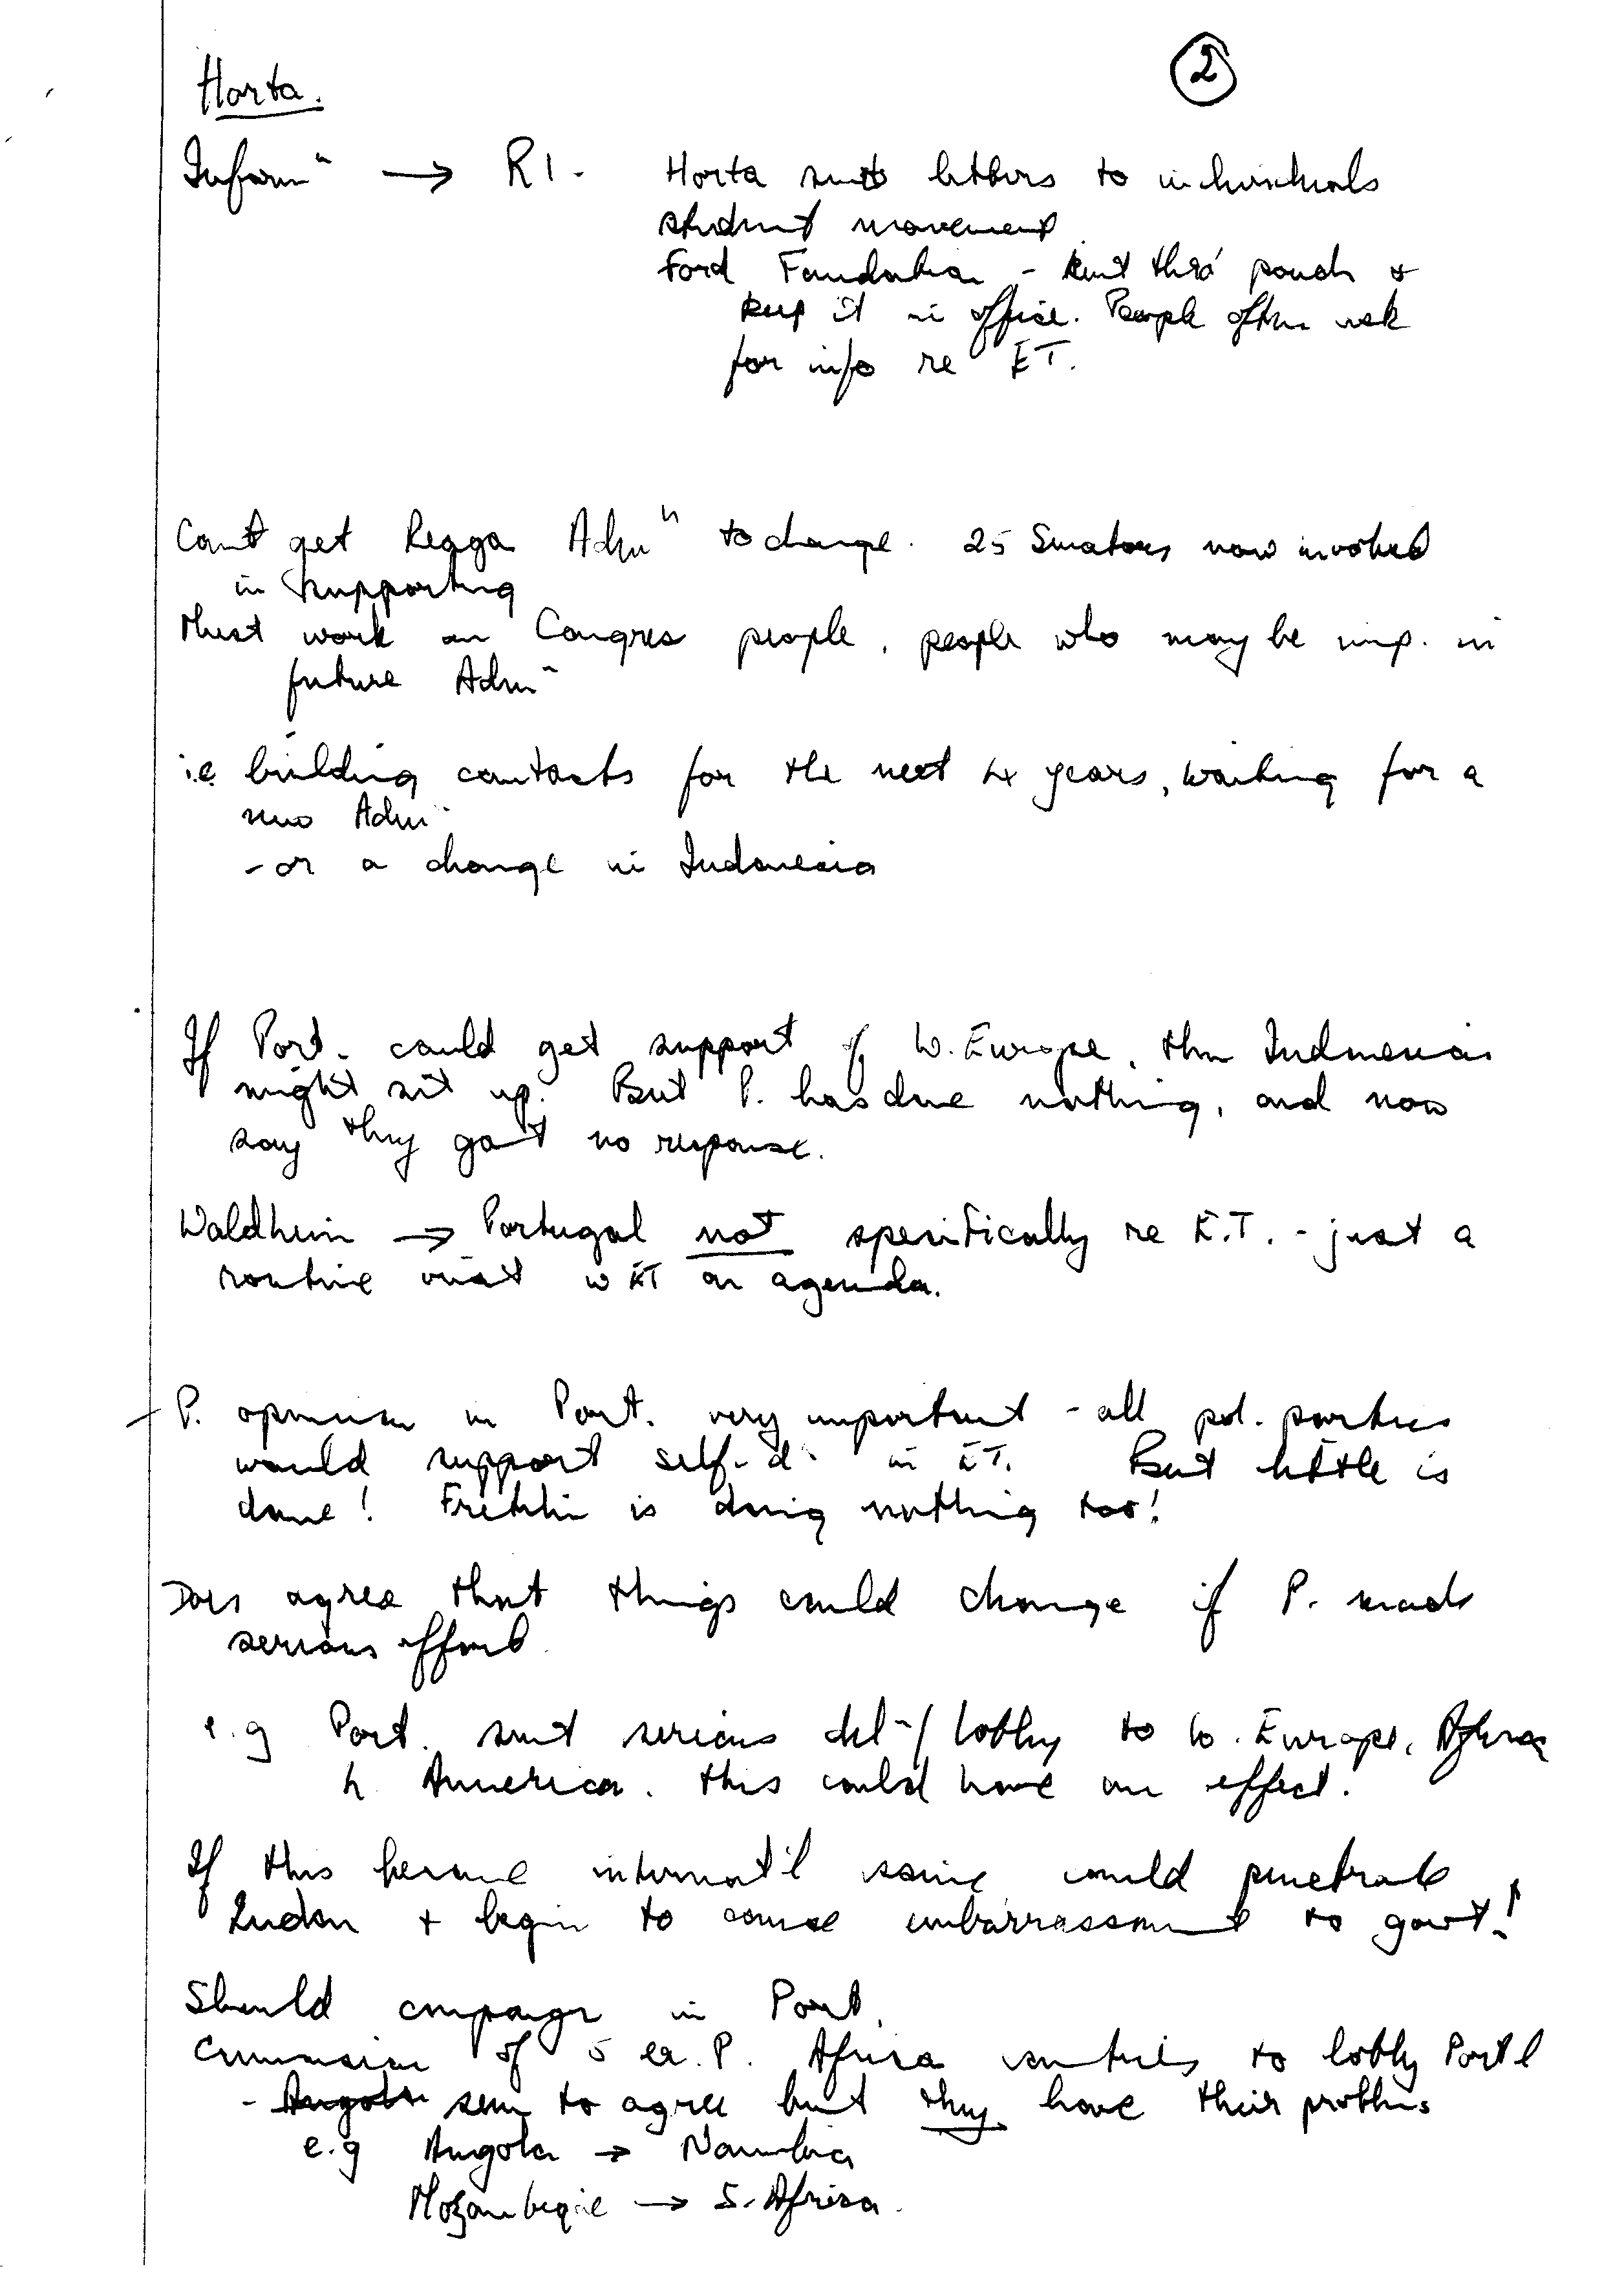 ②
Horta.
Inform⁻ⁿ → RI. Horta sends letters to individuals
student movement
Ford Foundation - sent thro' pouch +
keep it in office. People often ask
for info re ET.
Can't get Reaga Admⁿ to change. 25 Senators now involved
in supporting
Must work on Congress people, people who may be imp. in
future Admⁿ
i.e building contacts for the next 4 years, waiting for a
new Admⁿ
- or a change in Indonesia
If Port. could get support of W. Europe, then Indonesia
might sit up. But P. has done nothing, and now
say they got no response.
Waldheim → Portugal not specifically re E.T. - just a
routine visit w ET on agenda.
P. opinion in Port. very important - all pol. parties
would support self-d. in ET. But little is
done! Fretilin is doing nothing too!
Does agree that things could change if P. made
serious effort.
e.g Port. sent serious delⁿ/lobby to W. Europe, Africa
L. America. This could have an effect.
If this became internat'l issue could penetrate
Indon + begin to cause embarrassment to govt!
Should campaign in Port.
Commission of 5 ex. P. Africa countries to lobby Port'l
- Angola seem to agree but they have their problems
e.g Angola → Namibia
Mozambeque → S. Africa.